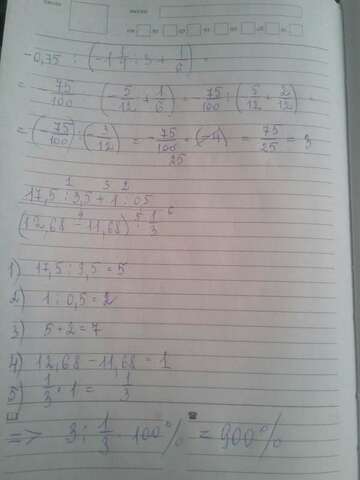 -0,75 : (-1 1/4 : 3 + 1/6)
= - 75/100 : (- 5/12 + 1/6) = - 75/100 : (- 5/12 + 2/12) =
= (- 75/100) : (- 3/12) = - 75/100 · (-4) = 75/25 = 3
25
1 3 2
17,5 : 3,5 + 1 : 05
(12,68 - 11,68) : 1/3
1) 17,5 : 3,5 = 5
2) 1 : 0,5 = 2
3) 5 + 2 = 7
4) 12,68 - 11,68 = 1
5) 1/3 · 1 = 1/3
=> 3 : 1/3 · 100% = 900%